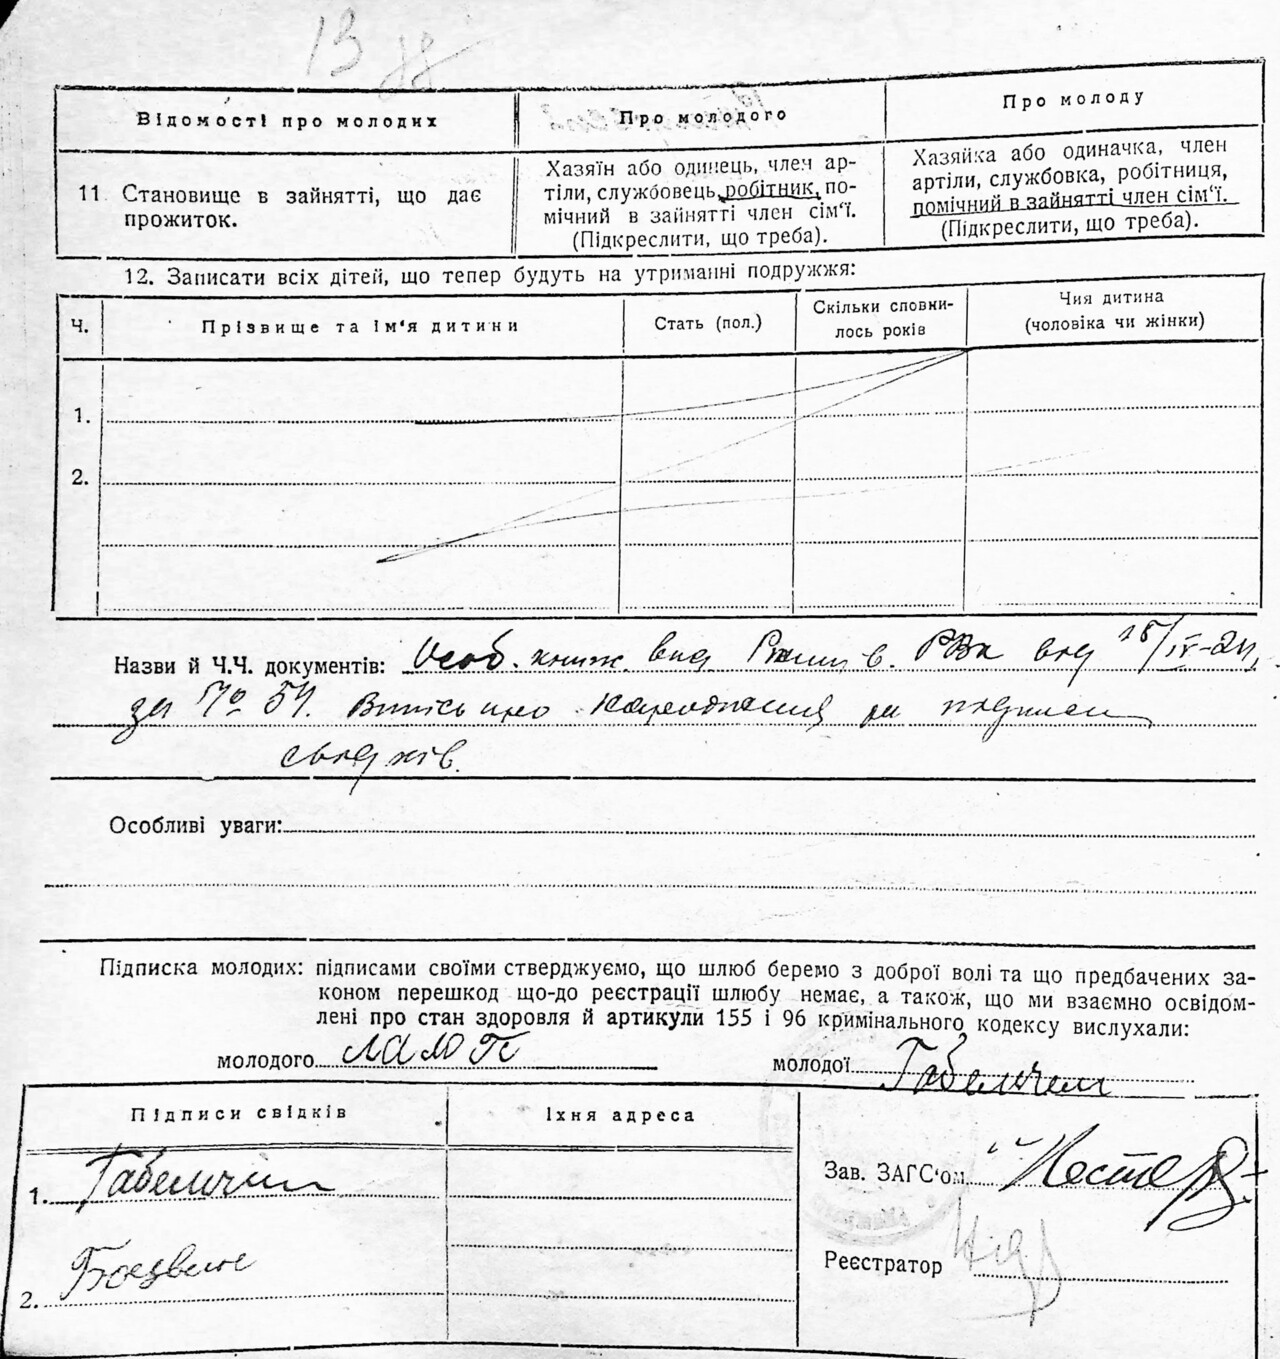 13
Відомості про молодих
Про молодого
Про молоду
11 Становище в зайнятті, що дає
прожиток.
Хазяїн або одинець, член ар-
тіли, службовець, робітник, по-
мічний в зайнятті член сім'ї.
(Підкреслити, що треба).
Хазяйка або одиначка, член
артіли, службовка, робітниця,
помічний в зайнятті член сім'ї.
(Підкреслити, що треба).
12. Записати всіх дітей, що тепер будуть на утриманні подружжя:
Ч.
Прізвище та ім'я дитини
Стать (пол.)
Скільки сповни-
лось років
Чия дитина
(чоловіка чи жінки)
1.
2.
Назви й Ч.Ч. документів: Особ. книж. вид РВК від
за № 54. Витись про народження та подписи
свідків.
Особливі уваги:
Підписка молодих: підписами своїми стверджуємо, що шлюб беремо з доброї волі та що предбачених за-
коном перешкод що-до реєстрації шлюбу немає, а також, що ми взаємно освідом-
лені про стан здоровля й артикули 155 і 96 кримінального кодексу вислухали:
молодого
молодої
Підписи свідків
Їхня адреса
1.
Зав. ЗАГС'ом
Реєстратор
2.